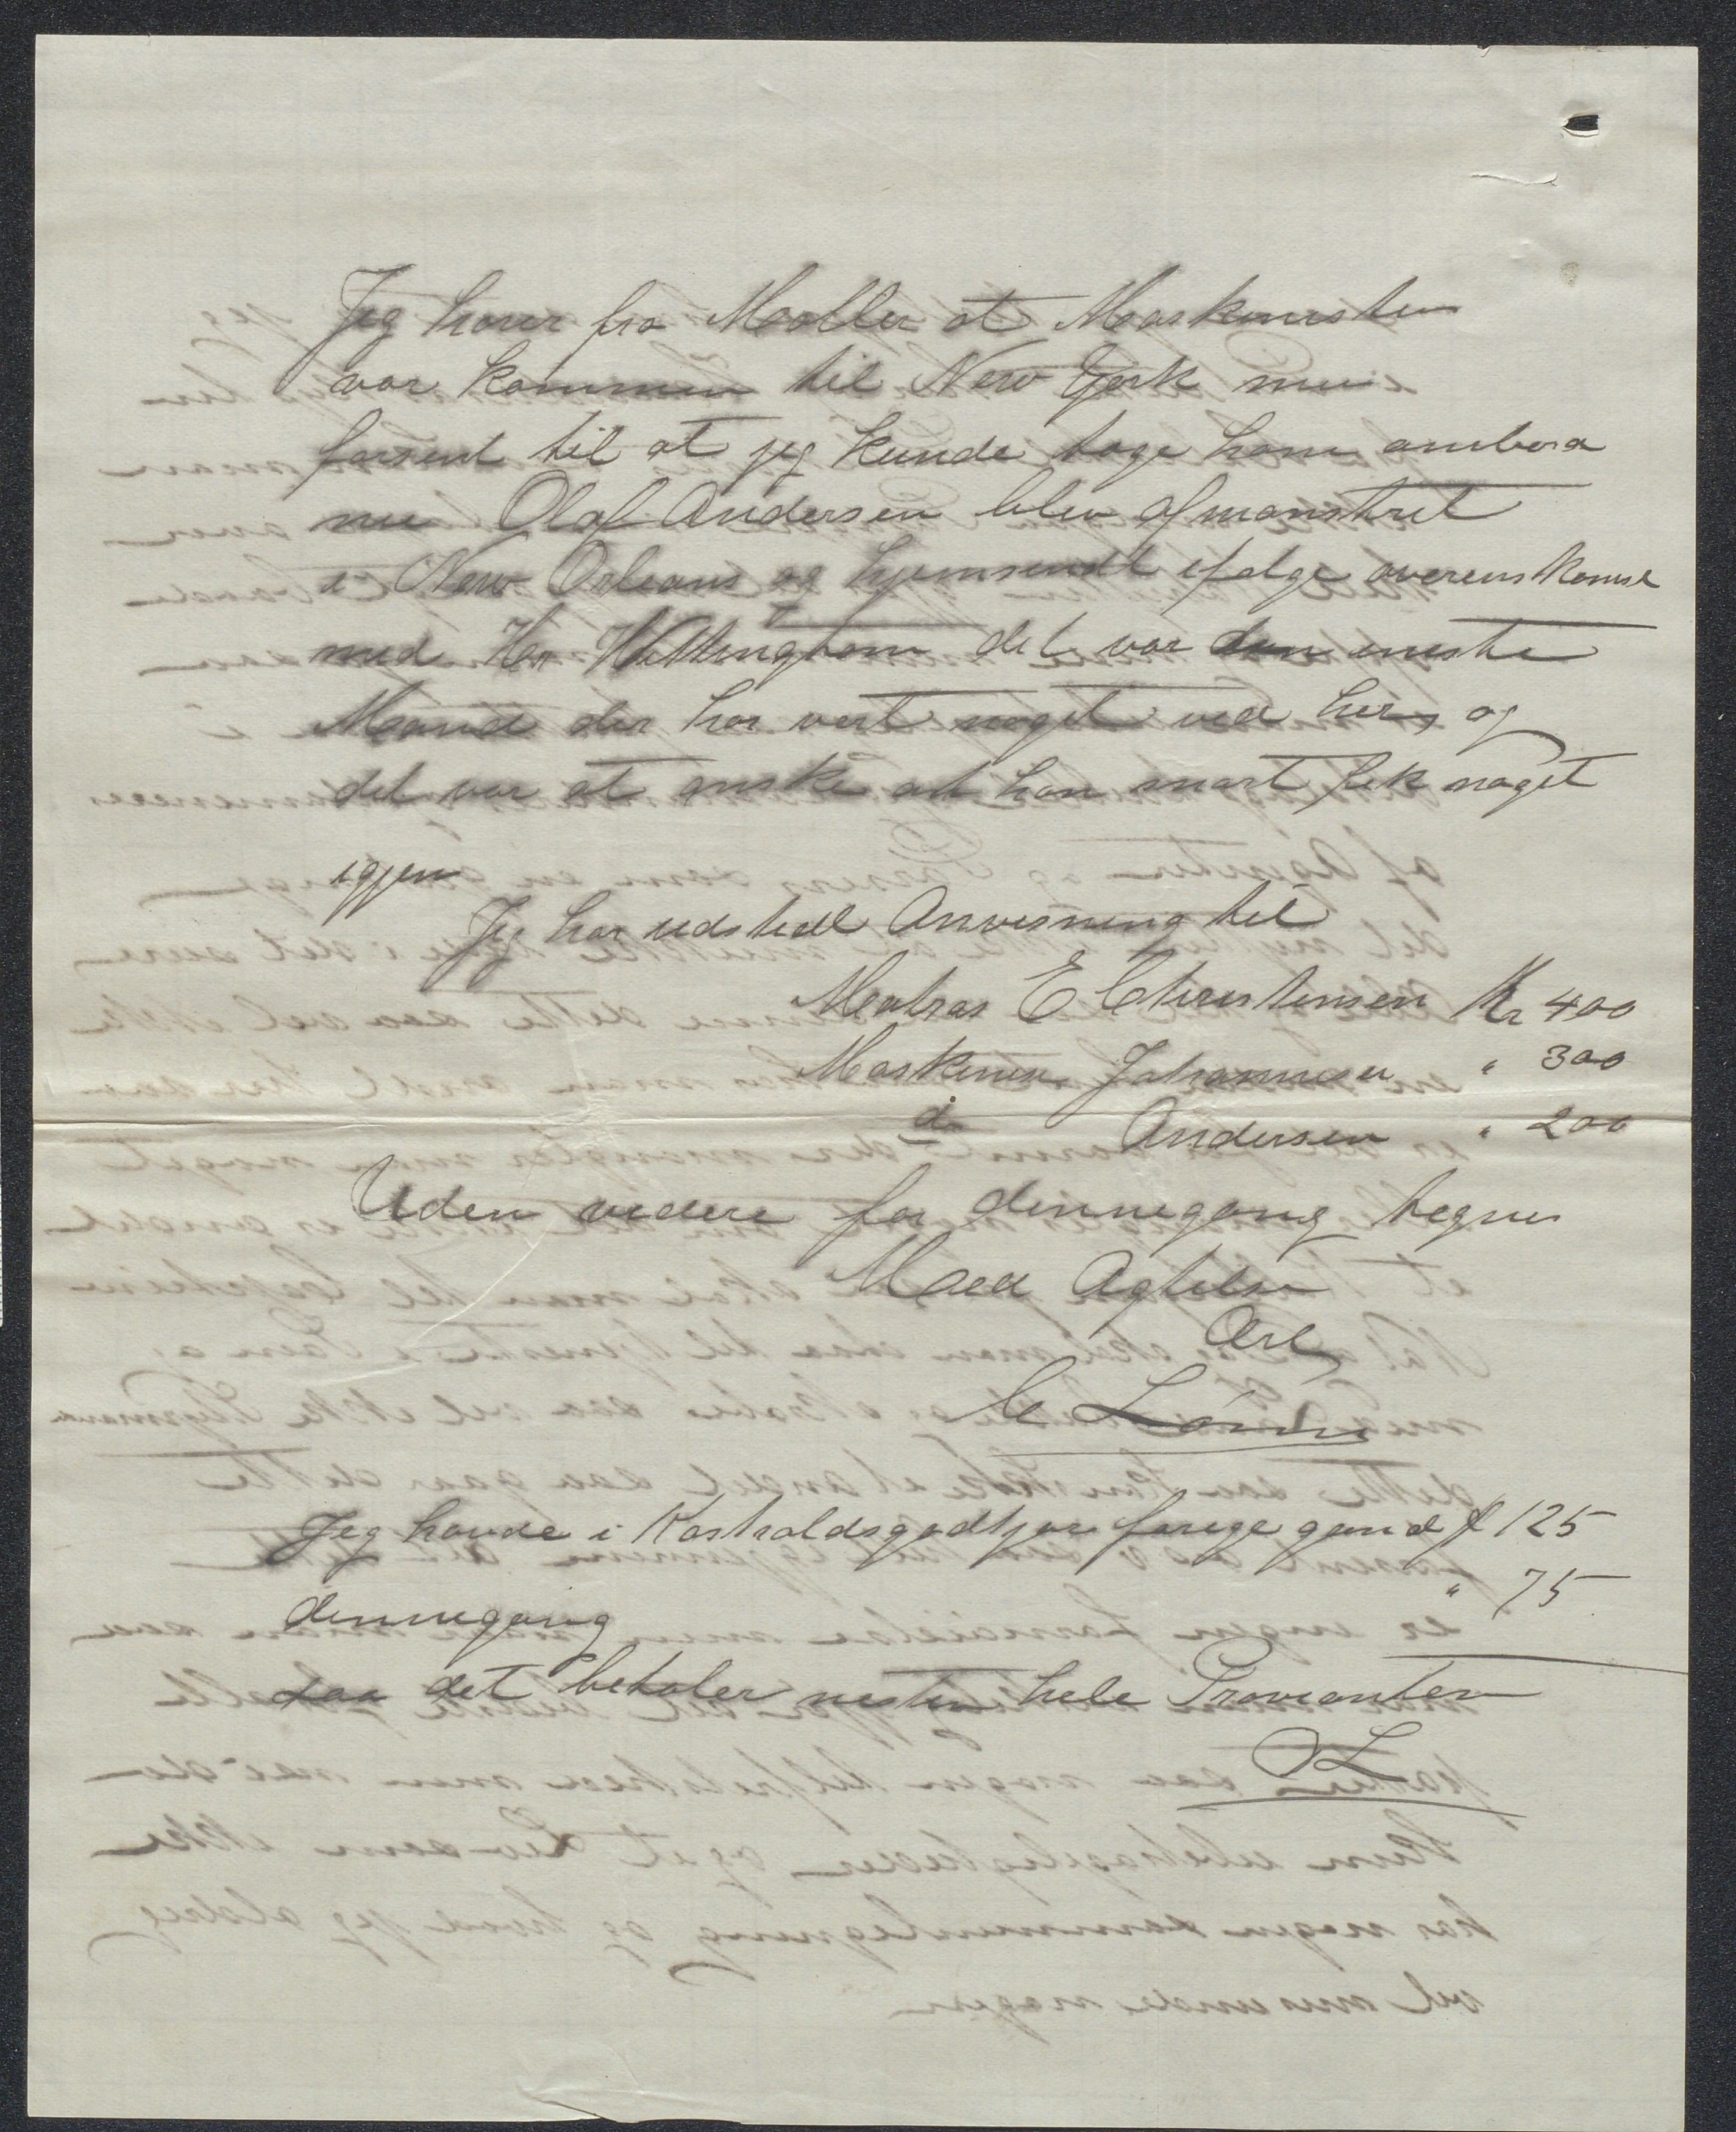 Jeg hører fra Møller at Maskinmesteren
var kommen til New York men
forsent til at jeg kunde tage ham ombord
nu Olaf Andersen blev afmønstret
i New Orleans og hjemsendt ifølge overenskomst
med Hr Wittingham det var den eneste
Mand der har vert noget ved her, og
det var at ønske at han snart fik noget
igjen
Jeg har udstedt Anvisning til
Matros E Christensen Kr 400
Maskinm. Johannesen " 300
do Andersen " 200
Uden videre for dennegang tegner
Med Agtelse
Ærb
C
Jeg havde i Kostholdsgodtjør forrige gand £ 125
dennegang " 75
saa det betaler nesten hele Provianten
L